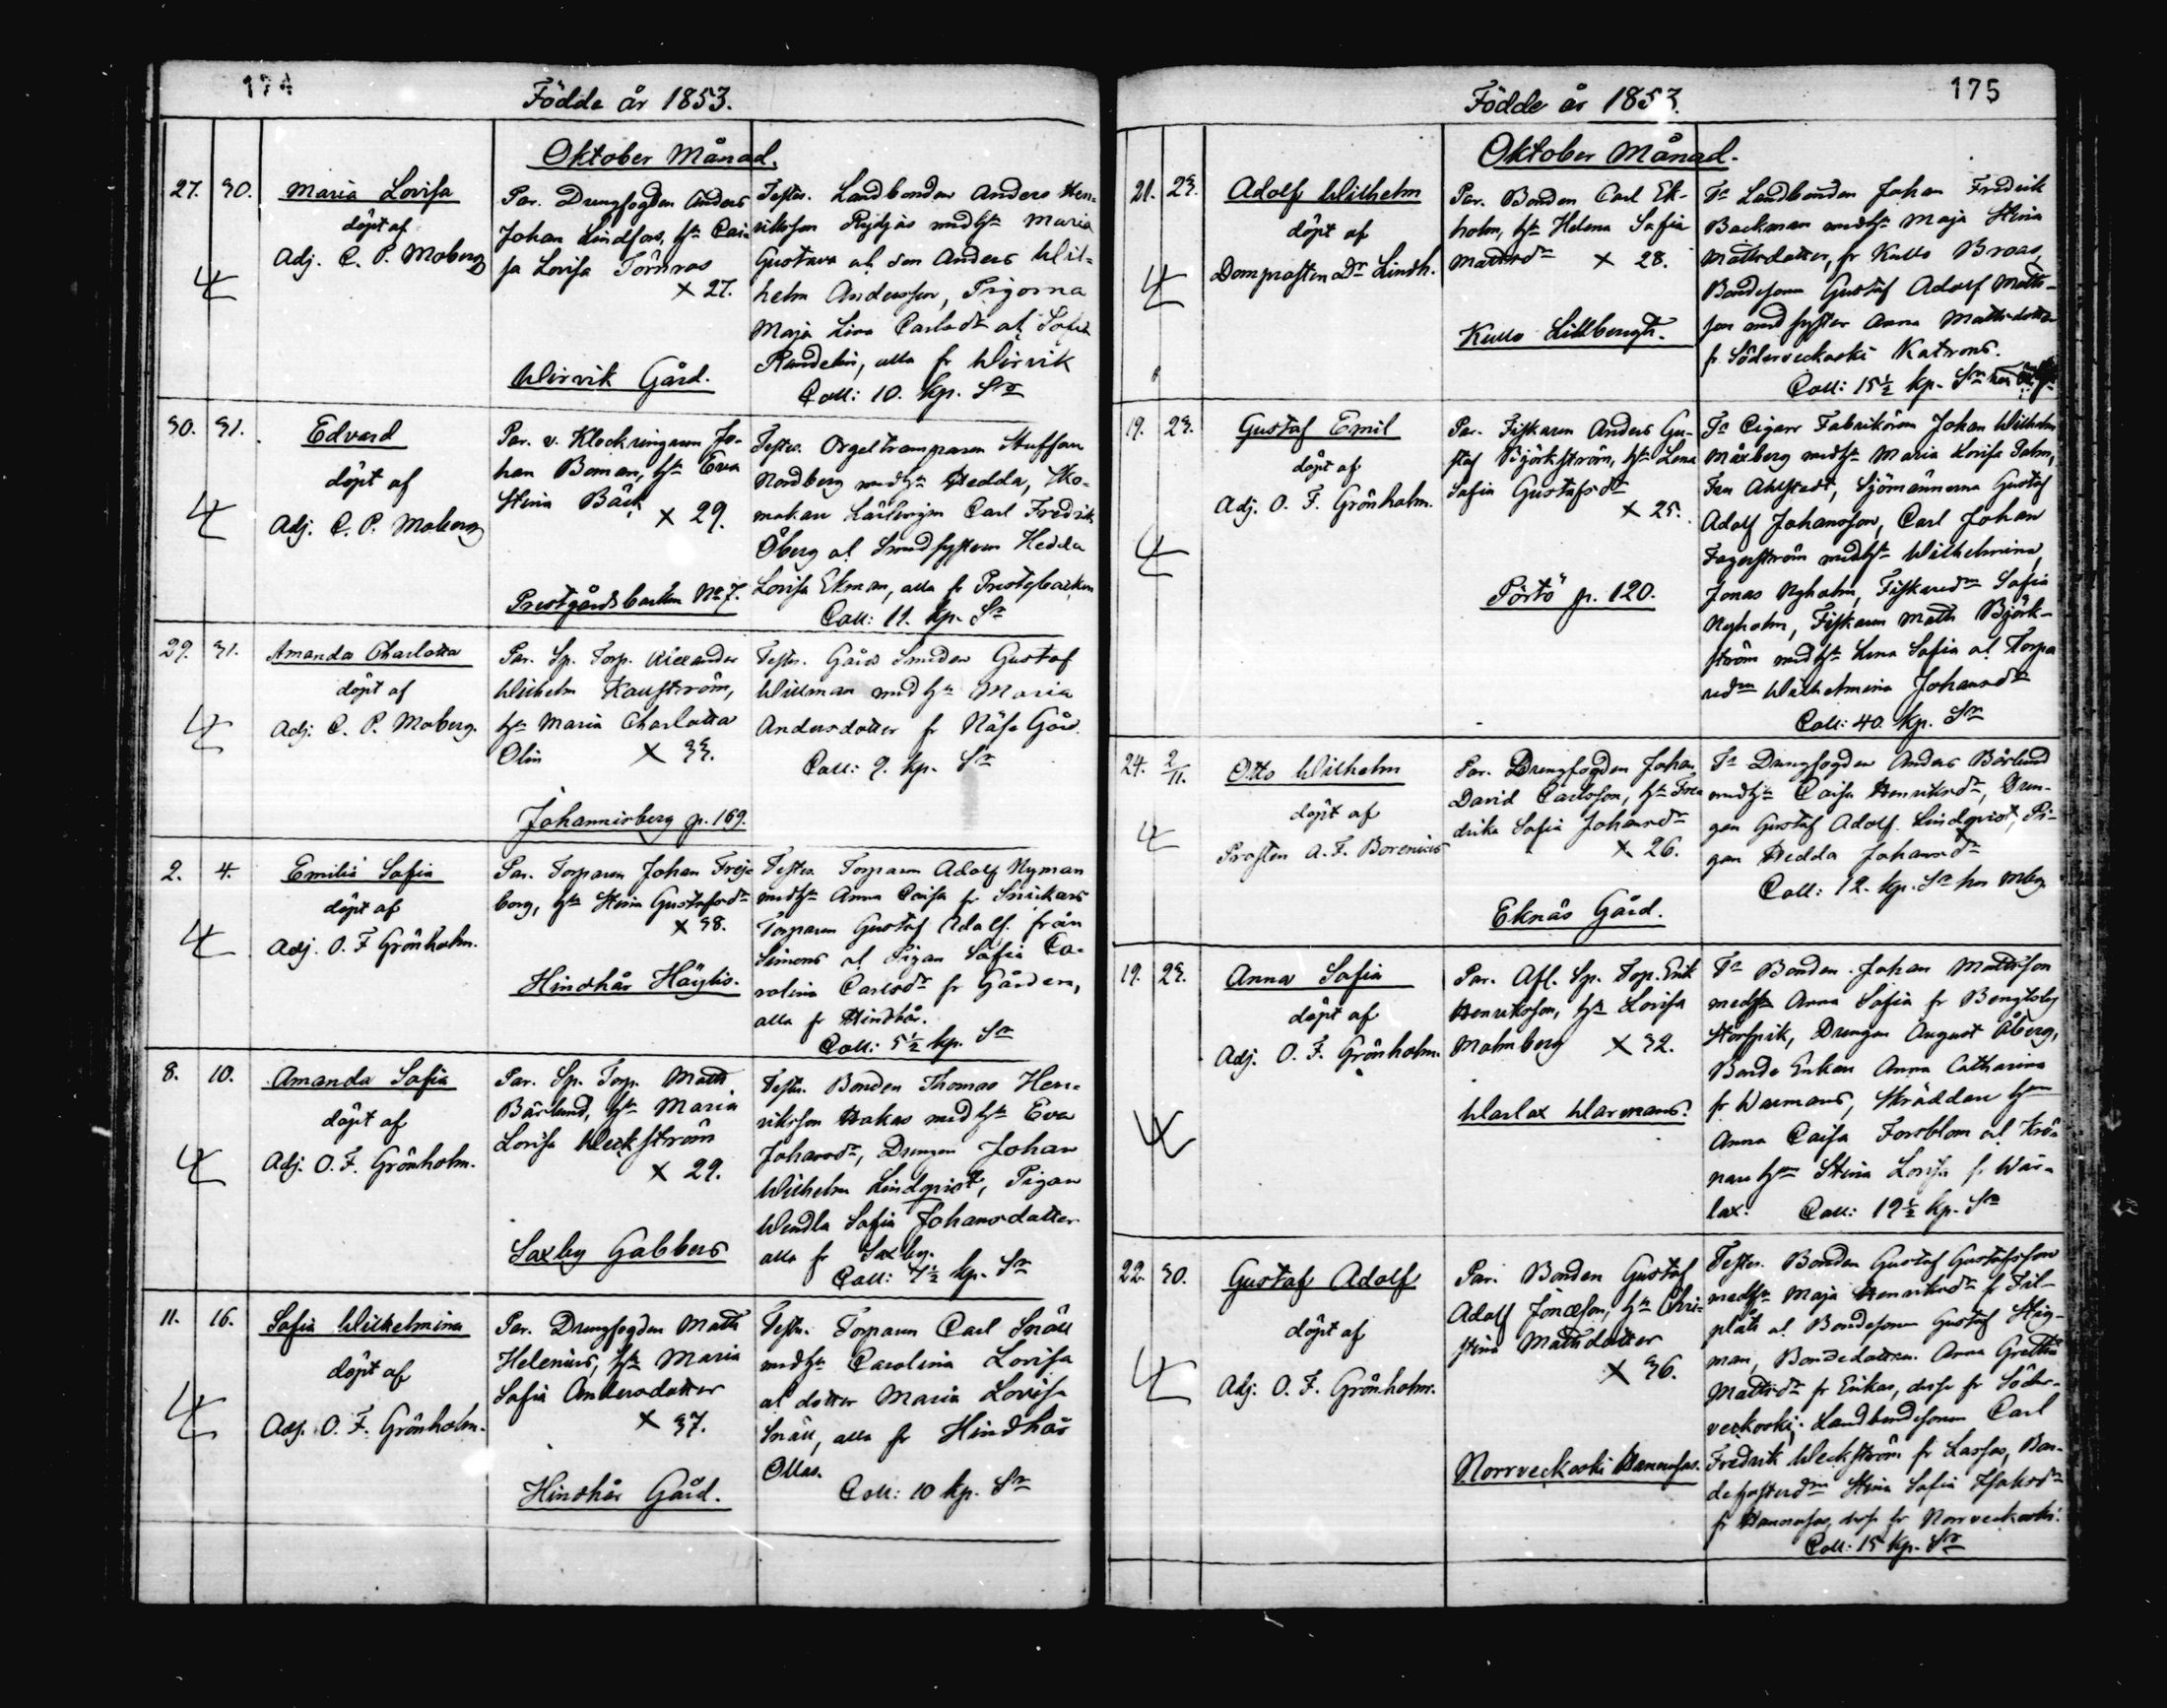 174
Födde år 1853.
Oktober Månad.
27. 30. Maria Lovisa
döpt af
Adj. C. P. Moberg
Par. Drengfogden Anders
Johan Lindfors, h:u Cai-
sa Lovisa Törnros
× 27.
Wirvik Gård.
Testes. Landbonden Anders Hen-
riksson med h:u Maria
Gustava och son Anders Wil-
helm Andersson, Pigorna
Maja Lisa Carlsdr och Sofia
Randelin, alla fr Wirvik
Coll: 10. kp. Sr
30. 31. Edvard
döpt af
Adj. C. P. Moberg
Par. v. Klockringaren Jo-
han Boman, h:u Eva
Stina Bäck
× 29.
Prestgårdsbacken No 7.
Testes. Orgeltramparen Staffan
Nordberg med h:u Hedda, Sko-
makare Lärlingen Carl Fredrik
Öberg och Smedsystern Hedda
Lovisa Ekman, alla fr Prestgbacken
Coll: 11. kp. Sr
29. 31. Amanda Charlotta
döpt af
Adj. C. P. Moberg.
Par. Sp. Torp. Alexander
Wilhelm Kauström,
h:u Maria Charlotta
Olin × 33.
Johannisberg p. 169.
Testes. Gårds Smeden Gustaf
Willman med h:u Maria
Andersdotter fr Näse Gård.
Coll: 9. kp. Sr
2. 4. Emilia Sofia
döpt af
Adj. O. F. Grönholm.
Par. Torparen Johan Frej-
borg, h:u Stina Gustafsdr
× 38.
Hindhår Höylis.
Testes. Torparen Adolf Nyman
med h:u Anna Caisa fr Snickars
Torparen Gustaf Adolf från
Simons och Pigan Sofia Ca-
rolina Carlsdr fr Gården,
alla fr Hindhår.
Coll: 5½ kp. Sr
8. 10. Amanda Sofia
döpt af
Adj. O. F. Grönholm.
Par. Sp. Torp. Matth
Bärlund, h:u Maria
Lovisa Weckström
× 29.
Saxby Gabbers
Testes. Bonden Thomas Hen-
riksson Hakas med h:u Eva
Johansdr, Drengen Johan
Wilhelm Lindqvist, Pigan
Wendla Sofia Johansdotter
alla fr Saxby.
Coll: 7½ kp. Sr
11. 16. Sofia Wilhelmina
döpt af
Adj. O. F. Grönholm.
Par. Drengfogden Math
Helenius, h:u Maria
Sofia Andersdotter
× 37.
Hindhår Gård.
Testes. Torparen Carl Snäll
med h:u Carolina Lovisa
och dotter Maria Lovisa
Snäll, alla fr Hindhår
Ollas.
Coll: 10 kp. Sr
175
Födde år 1853.
Oktober Månad.
21. 23. Adolf Wilhelm
döpt af
Domprosten Dr Lindh.
Par. Bonden Carl Ek-
holm, h:u Helena Sofia
Mattsdr × 28.
Kullo Lillbengts.
Ts Landbonden Johan Fredrik
Backman med h:u Maja Stina
Mattsdotter, fr Kullo Broas,
Bondesonen Gustaf Adolf Matts-
son med syster Anna Mattsdotter
fr Söderveckoski Katrens.
Coll: 15½ kp. Sr
19. 23. Gustaf Emil
döpt af
Adj. O. F. Grönholm.
Par. Fiskaren Anders Gu-
staf Björkström, h:u Lena
Sofia Gustafsdr
× 25.
Pörtö p. 120.
Ts Cigarr Fabrikören Johan Wilhelm
Måxberg med h:u Maria Lovisa Palm,
Fru Ahlstedt, Sjömännerna Gustaf
Adolf Johansson, Carl Johan
Fagerström med h:u Wilhelmina,
Jonas Nyholm, Sofia
Nyholm, Fiskaren Math Björk-
ström med h:u Lena Sofia och Torpa
redr Wilhelmina Johansdr
Coll: 40. kp. Sr
24. 2/11. Otto Wilhelm
döpt af
Prosten A. F. Borenius
Par. Drengfogden Johan
David Carlsson, h:u Fre-
drika Sofia Johansdr
× 26.
Eknäs Gård.
Ts Drengfogden Anders Bärlund
med h:u Caisa Henriksdr, Dren-
gen Gustaf Adolf Lindqvist, Pi-
gan Hedda Johansdr
Coll: 12. kp. Sr hos
19. 23. Anna Sofia
döpt af
Adj. O. F. Grönholm.
Par. Afl. Sp. Torp. Erik
Henriksson, h:u Lovisa
Malmberg × 32.
Warlax Warmans.
Ts Bonden Johan Mattsson
med h:u Anna Sofia fr Bengtsby
Drengen August Åberg,
Bonde Enkan Anna Catharina
fr Warmans, Skräddare h:un
Anna Caisa Forsblom och
Stina Lovisa fr War-
lax. Coll: 12½ kp. Sr
22. 30. Gustaf Adolf
döpt af
Adj. O. F. Grönholm.
Par. Bonden Gustaf
Adolf Jöncson, h:u Chri-
stina Mattsdotter
× 36.
Norrveckoski Hannusas.
Testes. Bonden Gustaf Gustafsson
med h:u Maja Henriksdr fr
och Bondesonen Gustaf Stig-
man, Bondedottern Anna Gretha
Mattsdr fr Erikas, desse fr Söder-
veckoski; Landbondesonen Carl
Fredrik Weckström fr Lassas, Bon-
Stina Sofia Isaksdr
fr Hannusas, desse fr Norrveckoski.
Coll: 15 kp. Sr